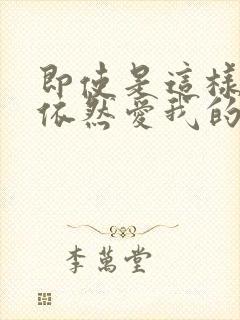 即使是這樣
依然愛我的
李萬堂